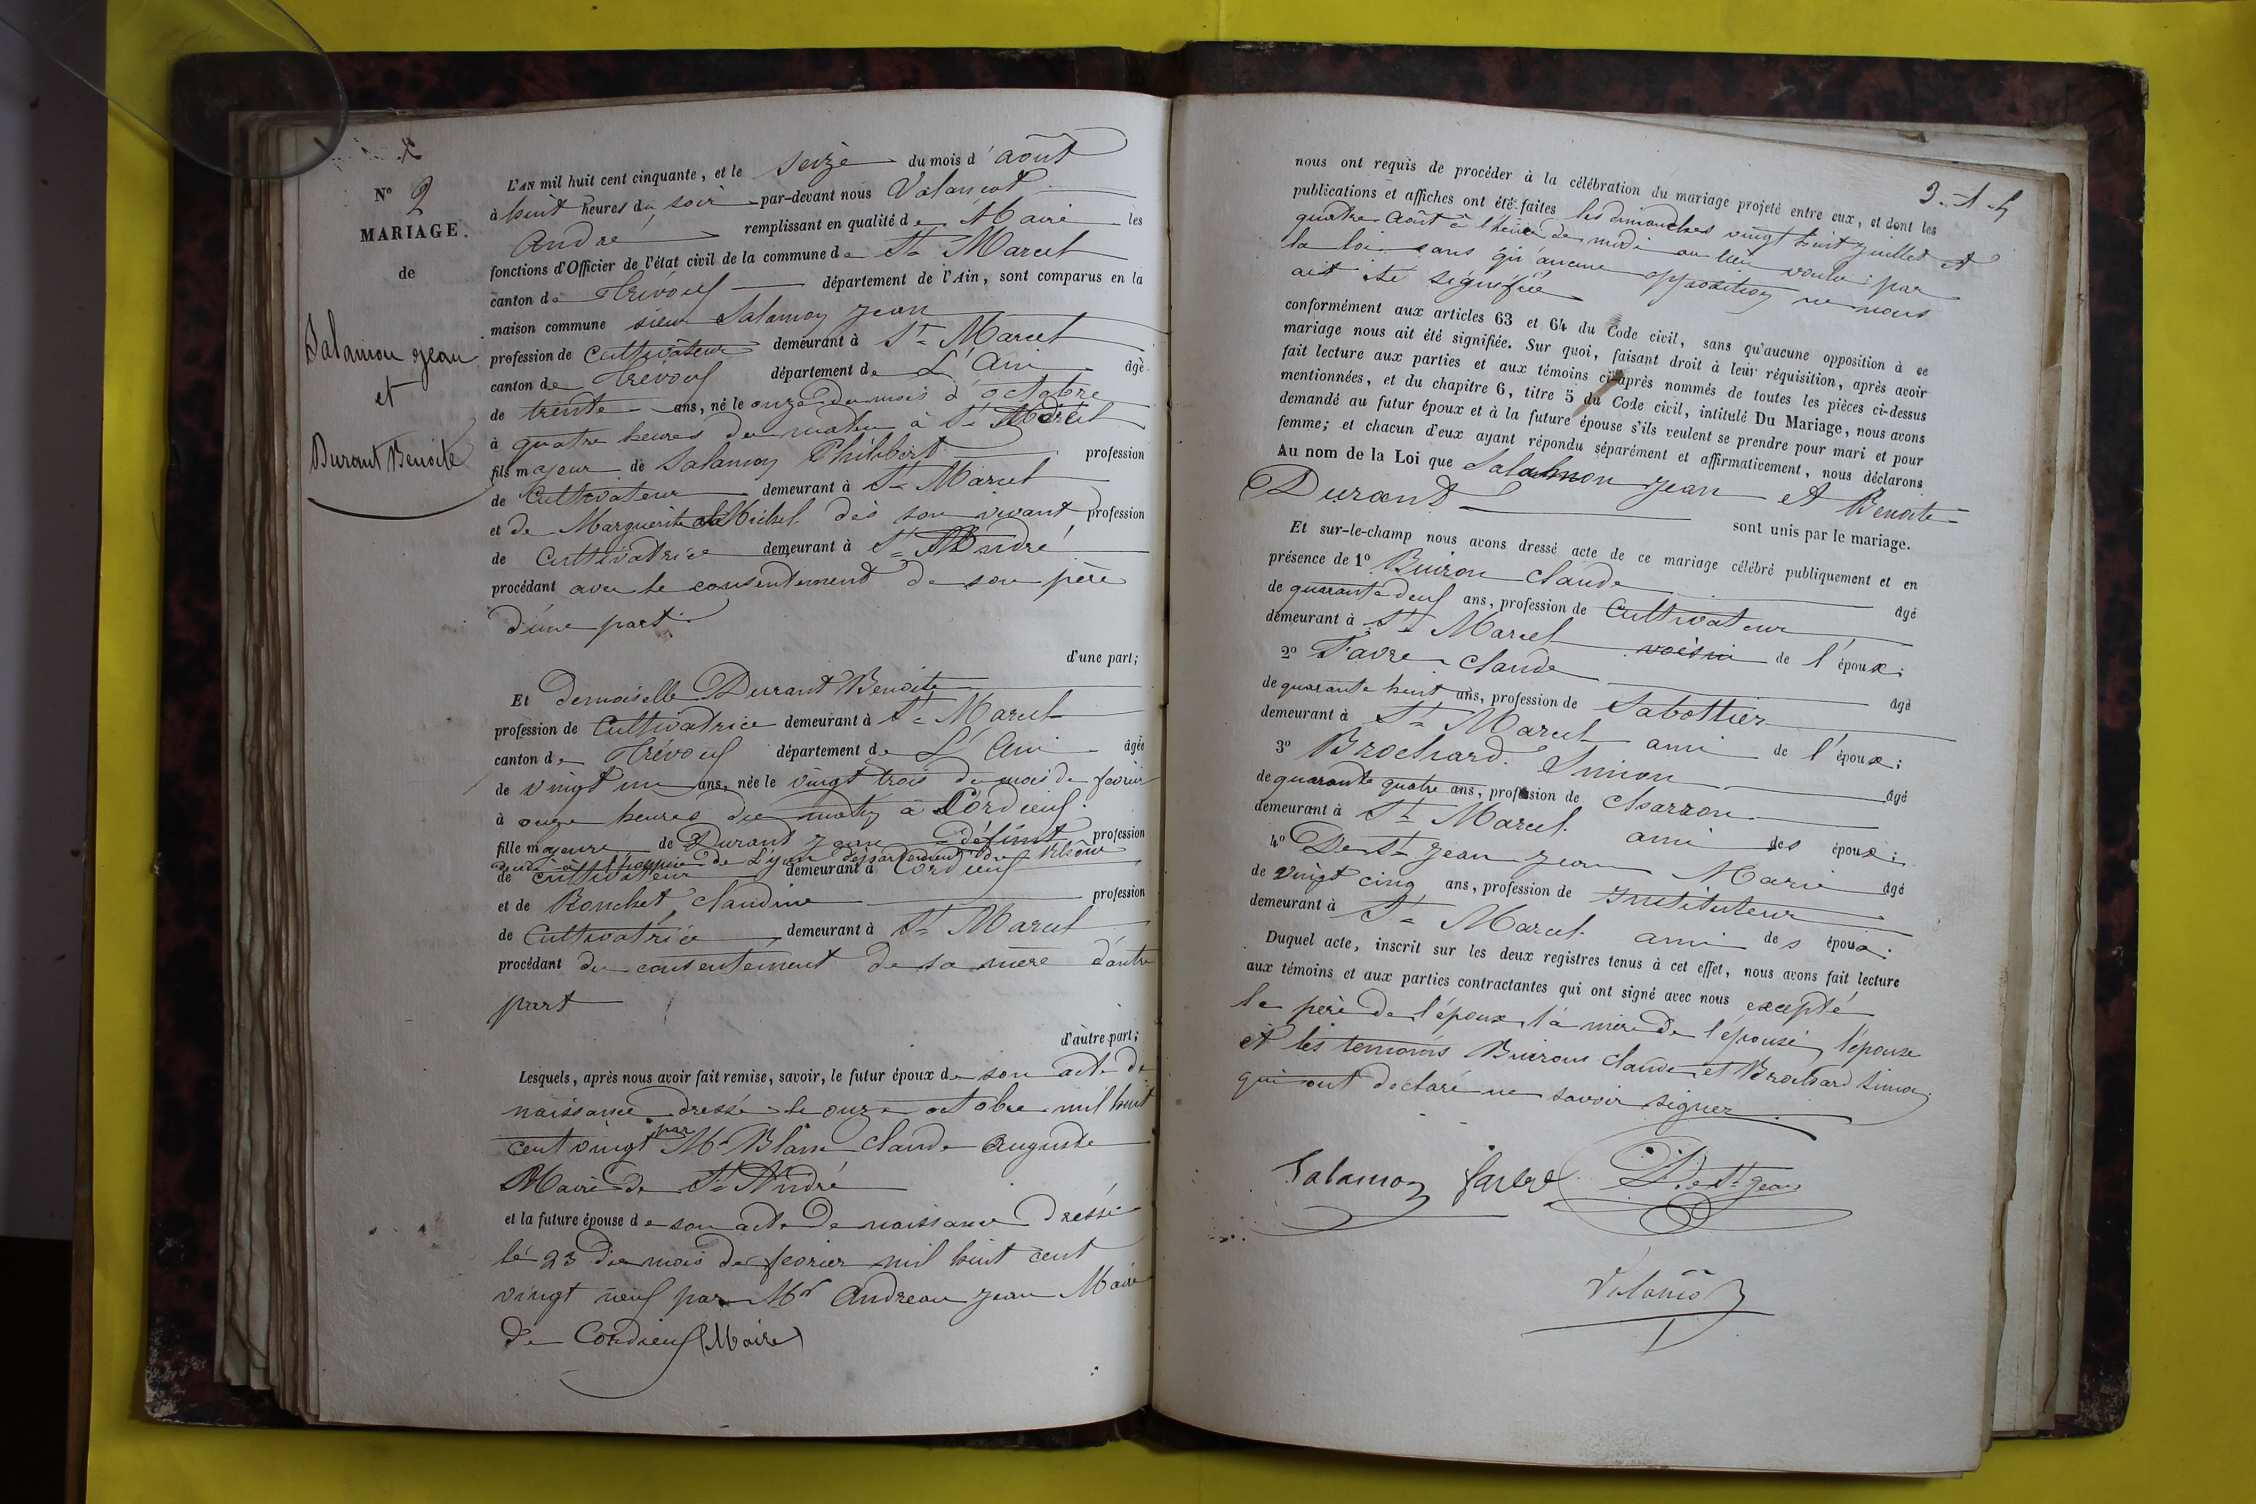 N° 2
MARIAGE.
de
Salamon jean
et
Durant Benoite
L'AN mil huit cent cinquante, et le seize du mois d'août
à huit heures du soir par-devant nous Valancot
André remplissant en qualité de Maire les
fonctions d'Officier de l'état civil de la commune de St Marcel
canton de Trévoux département de l'Ain, sont comparus en la
maison commune sieur Salamon jean
profession de Cultivateur demeurant à St Marcel
canton de Trévoux département de L'Ain âgé
de trente ans, né le onze du mois d'octobre
à quatre heures du matin à St Marcel
fils majeur de Salamon Philibert profession
de Cultivateur demeurant à St Marcel
et de Marguerite Michel dès son vivant profession
de Cultivatrice demeurant à St André
procédant avec le consentement de son père
d'une part
d'une part;
Et demoiselle Durrant Benoite
profession de Cultivatrice demeurant à St Marcel
canton de Trévoux département de L'Ain âgée
de vingt un ans, née le vingt trois du mois de fevrier
à onze heures du matin à Cordieux
fille majeure de Durant jean défunt profession
à l'hospice de Lyon département du Rhône
de cultivateur demeurant à Cordieux
et de Ronchet Claudine profession
de Cultivatrice demeurant à St Marcel
procédant du consentement de sa mère d'autre
part
d'autre part;
Lesquels, après nous avoir fait remise, savoir, le futur époux de son acte de
naissance dressé le onze octobre mil huit
cent vingt par Mr Blanc Claude Auguste
Maire de St André
et la future épouse de son acte de naissance dressé
le 23 du mois de fevrier mil huit cent
vingt neuf par Mr Andreau jean Maire
de Cordieux (Maire)
nous ont requis de procéder à la célébration du mariage projeté entre eux, et dont les
publications et affiches ont été faites les dimanches vingt huit juillet et
quatre août à l'heure de midi au lieu voulu par
la loi sans qu'aucune opposition ne nous
ait été signifiée
conformément aux articles 63 et 64 du Code civil, sans qu'aucune opposition à ce
mariage nous ait été signifiée. Sur quoi, faisant droit à leur réquisition, après avoir
fait lecture aux parties et aux témoins ci-après nommés de toutes les pièces ci-dessus
mentionnées, et du chapitre 6, titre 5 du Code civil, intitulé Du Mariage, nous avons
demandé au futur époux et à la future épouse s'ils veulent se prendre pour mari et pour
femme; et chacun d'eux ayant répondu séparément et affirmativement, nous déclarons
Au nom de la Loi que Salamon jean et Benoite
Durant sont unis par le mariage.
Et sur-le-champ nous avons dressé acte de ce mariage célébré publiquement et en
présence de 1° Buiron Claude âgé
de quarante deux ans, profession de Cultivateur
demeurant à St Marcel voisin de l'époux;
2° Favre Claude âgé
de quarante huit ans, profession de Sabottier
demeurant à St Marcel ami de l'époux;
3° Brochard Simon âgé
de quarante quatre ans, profession de Charron
demeurant à St Marcel ami des époux;
4° De St jean jean Marie âgé
de vingt cinq ans, profession de instituteur
demeurant à St Marcel ami des époux.
Duquel acte, inscrit sur les deux registres tenus à cet effet, nous avons fait lecture
aux témoins et aux parties contractantes qui ont signé avec nous excepté
le père de l'époux la mère de l'épouse, l'épouse
et les temoins Buiron Claude et Brochard Simon
qui ont declaré ne savoir signer
Salamon favre De St jean
Valancot